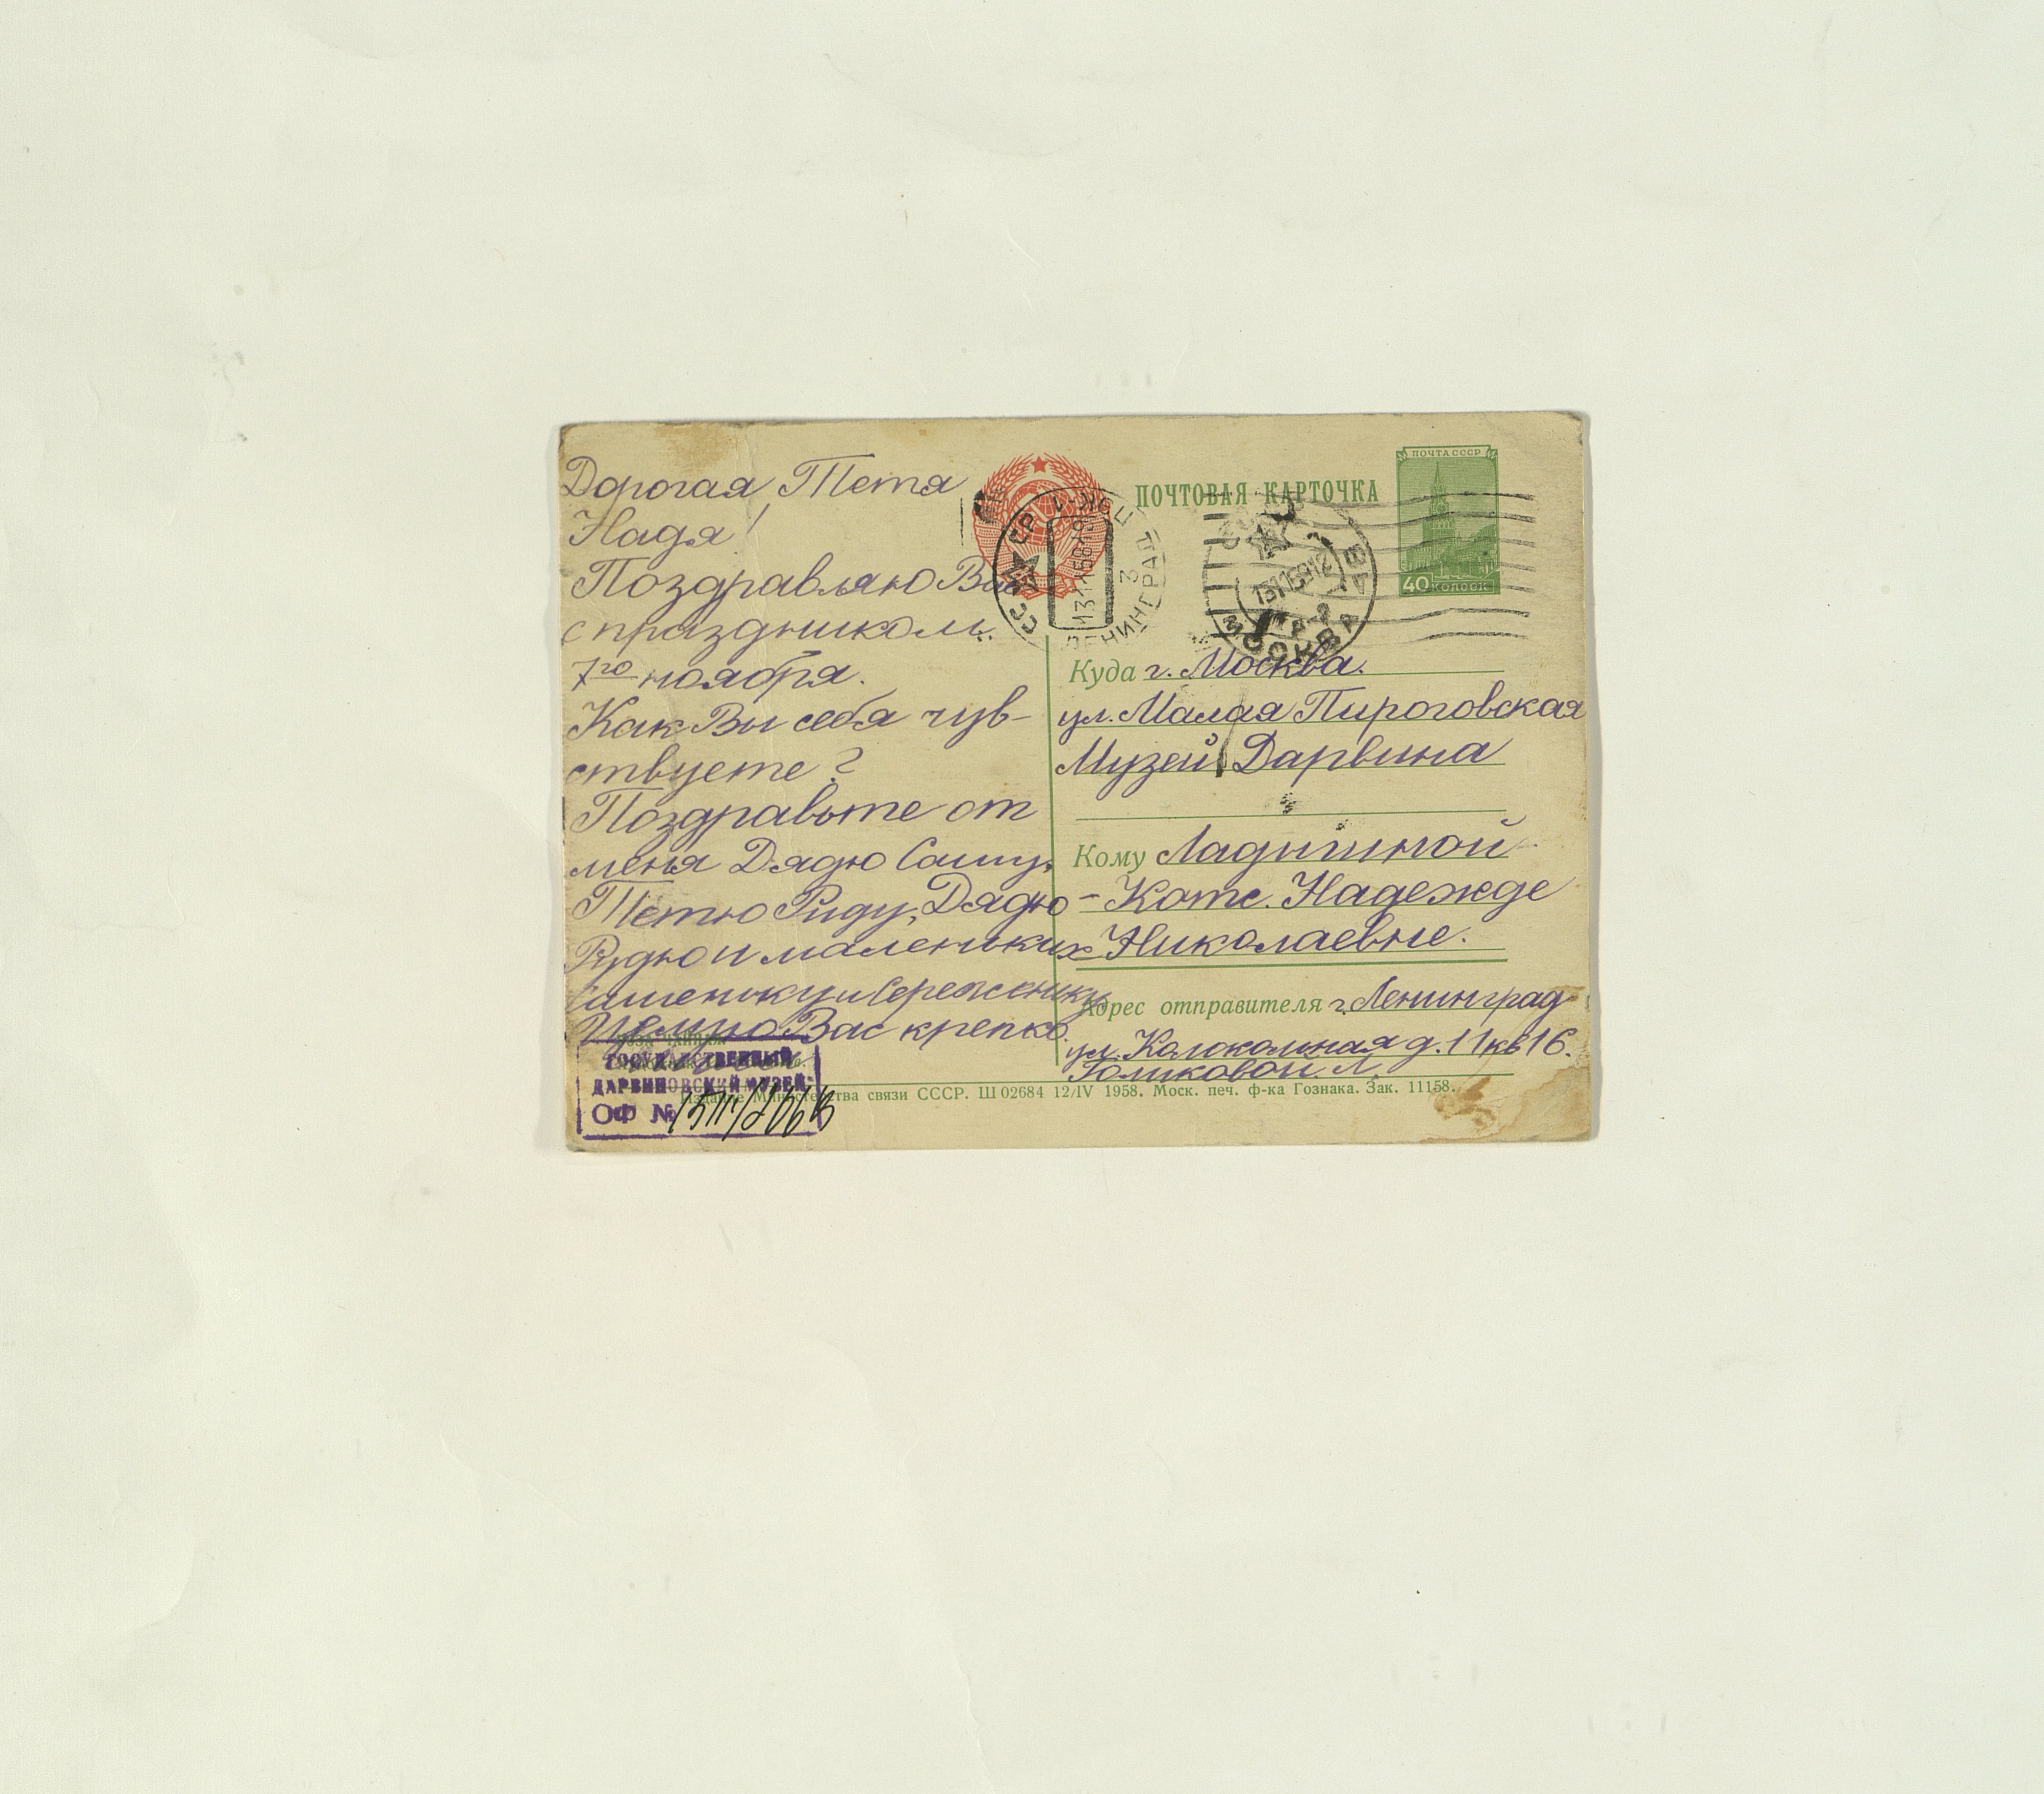 Дорогая Тетя
Надя!
Поздравляю Вас
с праздником
7го ноября.
Как Вы себя чув-
ствуете?
Поздравьте от
меня Дядю Сашу,
Тетю Риду, Дядю
Рудю и маленьких
Сашеньку и Сереженьку
Целую Вас крепко.
ГОСУДАРСТВЕННЫЙ
ДАРВИНОВСКИЙ МУЗЕЙ
ОФ №
ПОЧТОВАЯ КАРТОЧКА
ПОЧТА СССР
40 КОПЕЕК
СССР
ЛЕНИНГРАД
3
МОСКВА
Куда г. Москва.
ул. Малая Пироговская
Музей Дарвина
Кому Ладыгиной
- Котс. Надежде
Николаевне.
Адрес отправителя г. Ленинград
ул. Колокольная д. 11 кв 16.
Голиковой. Л.
Издание Министерства связи СССР. Ш 02684 12/IV 1958. Моск. печ. ф-ка Гознака. Зак. 11158.